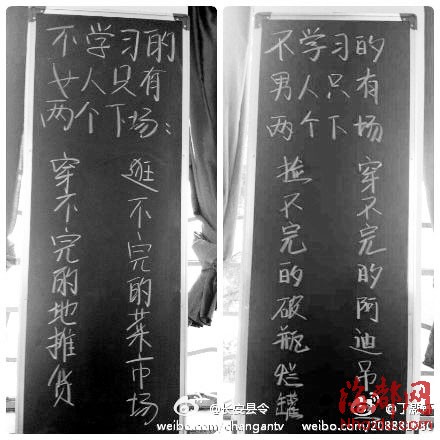 不学习的
女人只有
两个下场：
逛不完的菜市场
穿不完的地摊货
@长安县令
weibo.com/changantv
不学习的
男人只有
两个下场
穿不完的阿迪吊
捡不完的破瓶烂罐
海都网